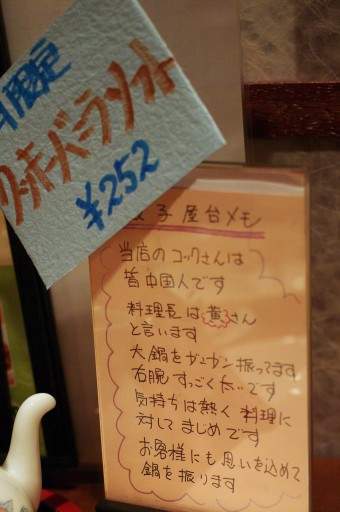 月限定
クッキーバニラソフト
¥252
餃子屋台メモ
当店のコックさんは
皆中国人です
料理長は黄さん
と言います
大鍋をガンガン振ってます
右腕すっごく太いです
気持ちは熱く料理に
対してまじめです
お客様にも思いを込めて
鍋を振ります